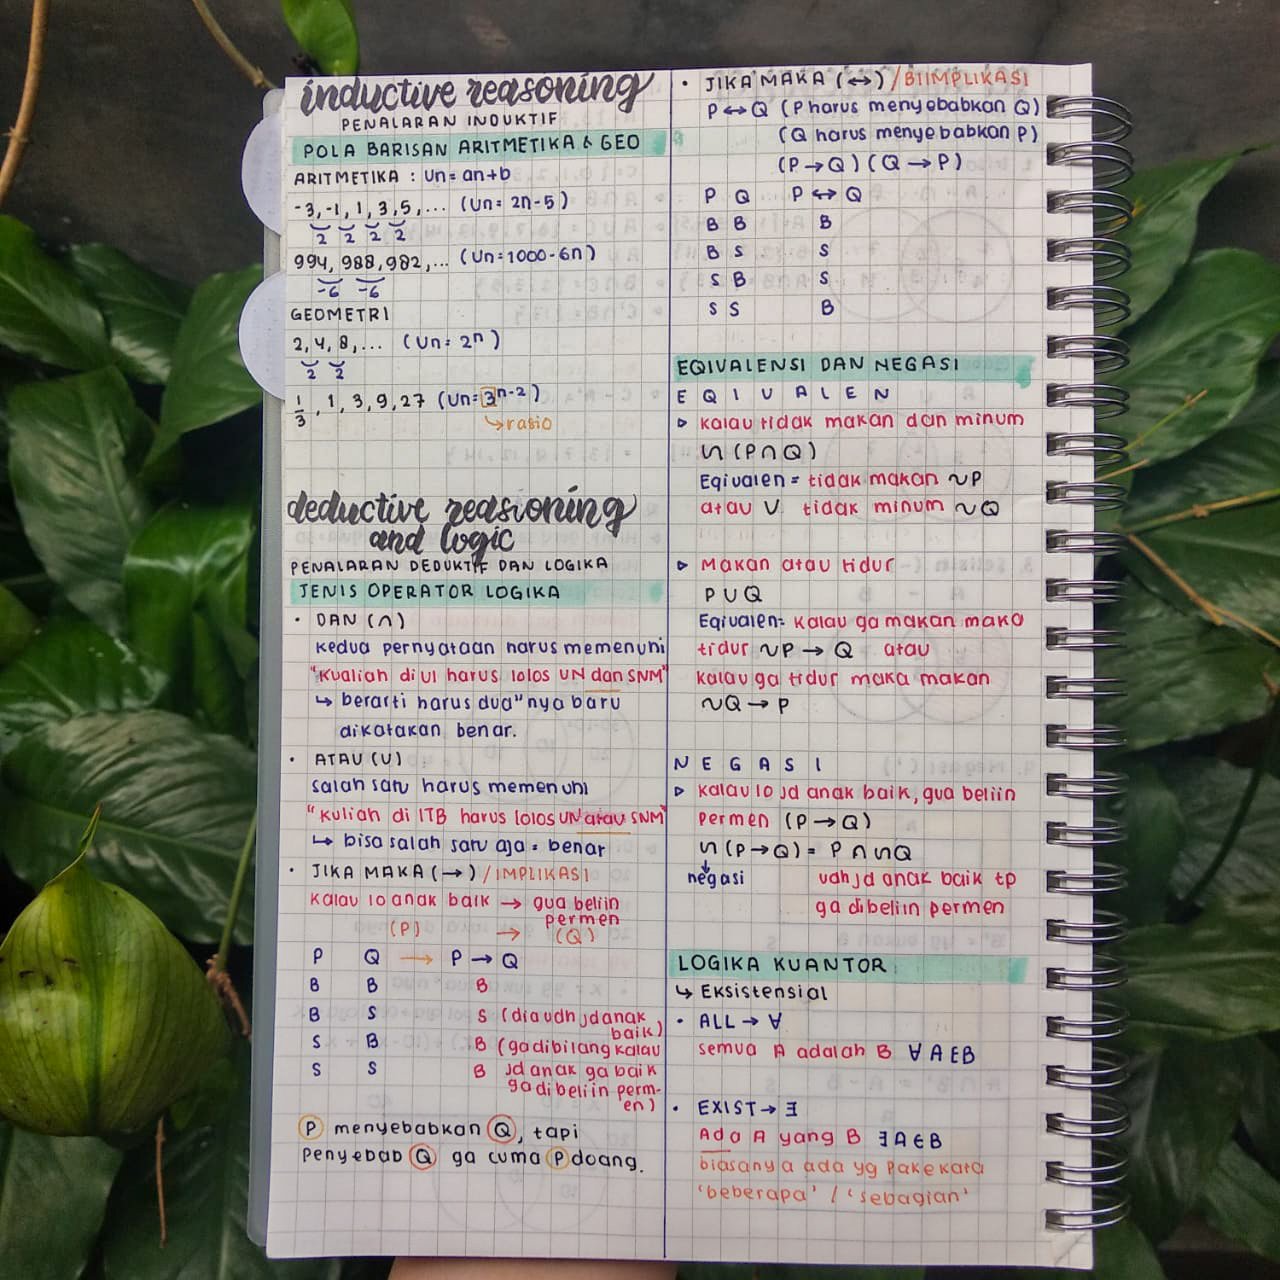 inductive reasoning
PENALARAN INDUKTIF
POLA BARISAN ARITMETIKA & GEO
ARITMETIKA : Un = an+b
-3, -1, 1, 3, 5, ... (Un = 2n-5)
2 2 2 2
994, 988, 982, ... (Un = 1000-6n)
-6 -6
GEOMETRI
2, 4, 8, ... (Un = 2ⁿ)
2 2
1/3, 1, 3, 9, 27 (Un = 3ⁿ⁻²)
↳ rasio
deductive reasioning
and logic
PENALARAN DEDUKTIF DAN LOGIKA
JENIS OPERATOR LOGIKA
• DAN (∩)
kedua pernyataan harus memenuhi
"Kualiah di UI harus lolos UN dan SNM"
↳ berarti harus dua"nya baru
dikatakan benar.
• ATAU (U)
salah satu harus memenuhi
"kuliah di ITB harus lolos UN atau SNM"
↳ bisa salah satu aja = benar
• JIKA MAKA (→) / IMPLIKASI
kalau lo anak baik → gua beliin
permen
(P) → (Q)
P Q → P → Q
B B B
B S S (dia udh jd anak
baik)
S B B (ga dibilang kalau
S S B jd anak ga baik
ga dibeliin perm-
en)
P menyebabkan Q, tapi
Penyebab Q ga cuma P doang.
• JIKA MAKA (↔) / BIIMPLIKASI
P ↔ Q (P harus menyebabkan Q)
(Q harus menyebabkan P)
(P → Q) (Q → P)
P Q P ↔ Q
B B B
B S S
S B S
S S B
EQIVALENSI DAN NEGASI
E Q I V A L E N
▷ kalau tidak makan dan minum
∽ (P ∩ Q)
Eqivalen = tidak makan ~P
atau V tidak minum ~Q
▷ Makan atau tidur
P U Q
Eqivalen = kalau ga makan maka
tidur ~P → Q atau
kalau ga tidur maka makan
~Q → P
N E G A S I
▷ kalau lo jd anak baik, gua beliin
permen (P → Q)
∽ (P → Q) = P ∩ ∽Q
↓
negasi udh jd anak baik tp
ga dibeliin permen
LOGIKA KUANTOR
↳ Eksistensial
• ALL → ∀
semua A adalah B ∀ A ∈ B
• EXIST → ∃
Ada A yang B ∃ A ∈ B
biasanya ada yg pake kata
'beberapa' / 'sebagian'